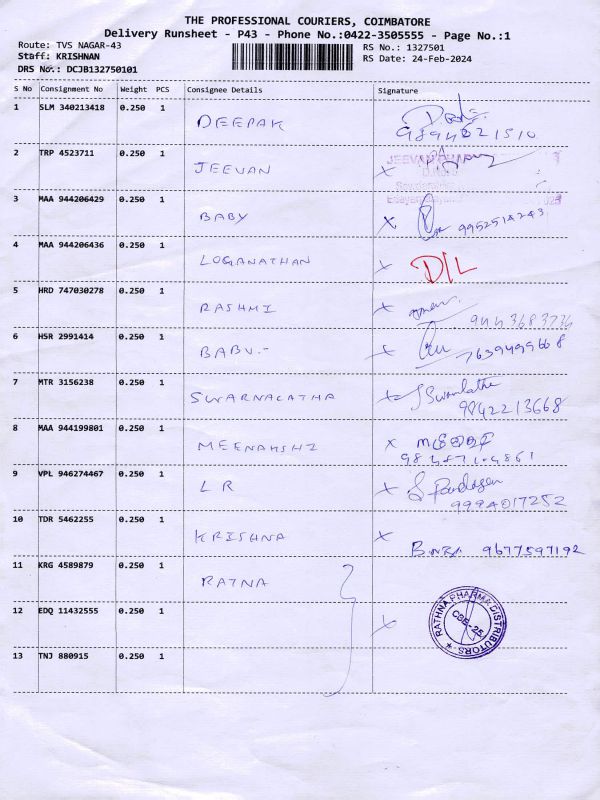 THE PROFESSIONAL COURIERS, COIMBATORE
Delivery Runsheet - P43 - Phone No.:0422-3505555 - Page No.:1
Route: TVS NAGAR-43
RS No.: 1327501
Staff: KRISHNAN
RS Date: 24-Feb-2024
DRS No.: DCJB132750101
S No Consignment No Weight PCS Consignee Details Signature
1 SLM 340213418 0.250 1 DEEPAK
2 TRP 4523711 0.250 1 JEEVAN
3 MAA 944206429 0.250 1 BABY 9952514243
4 MAA 944206436 0.250 1 LOGANATHAN D/L
5 HRD 747030278 0.250 1 RASHMI 9443683736
6 HSR 2991414 0.250 1 BABU.- 7639499668
7 MTR 3156238 0.250 1 SWARNALATHA Swarnlatha
9842213668
8 MAA 944199801 0.250 1 MEENAKSHI
9 VPL 946274467 0.250 1 LR
9994017252
10 TDR 5462255 0.250 1 KRISHNA 9677597192
11 KRG 4589879 0.250 1 RATNA
12 EDQ 11432555 0.250 1
RATHNA PHARMA DISTRIBUTORS
CBE-25
13 TNJ 880915 0.250 1